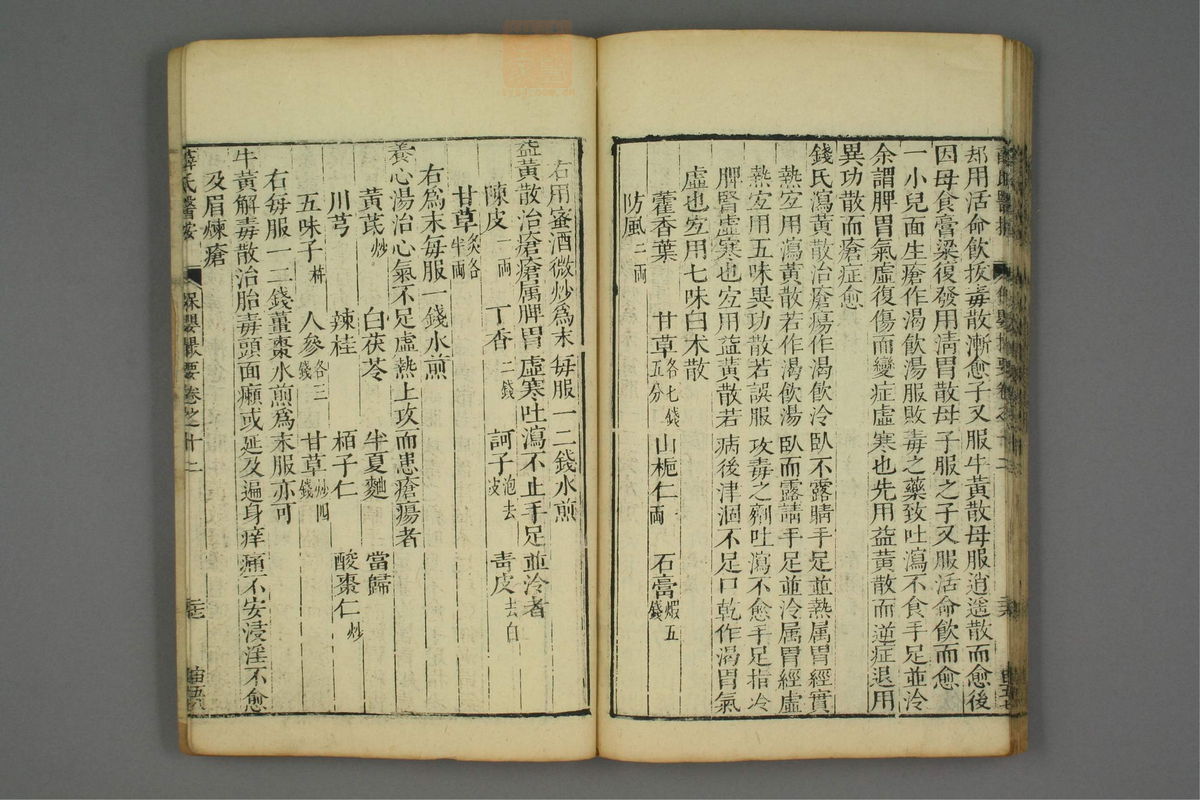 却用活命飲抜毒散漸愈子又服牛黃散母服逍遙散而愈後
因母食膏粱復發用清胃散母子服之子又服活命飲而愈
一小兒面生瘡作渴飲湯服敗毒之藥致吐瀉不食手足並冷
余謂脾胃氣虛復傷而變症虛寒也先用益黃散而逆症退用
異功散而瘡症愈
錢氏瀉黃散治瘡瘍作渴飲冷臥不露睛手足並熱属胃經實
熱宜用瀉黃散若作渴飲湯臥而露睛手足並冷属胃經虛
熱宜用五味異功散若誤服攻毒之劑吐瀉不愈手足指冷
脾腎虛寒也宜用益黃散若病後津涸不足口乾作渴胃氣
虛也宜用七味白术散
藿香葉 甘草各七錢五分 山梔仁一兩 石膏煆五錢
防風二兩
右用蜜酒微炒爲末每服一二錢水煎
益黃散治瘡瘡属脾胃虛寒吐瀉不止手足並冷者
陳皮一兩 丁香二錢 訶子泡去皮 靑皮去白
甘草炙各半兩
右爲末每服一錢水煎
養心湯治心氣不足虛熱上攻而患瘡瘍者
黃茋炒 白茯苓 半夏麯 當歸
川芎 辣桂 栢子仁 酸棗仁炒
五味子杵 人參各三錢 甘草炒四錢
右每服一二錢薑棗水煎爲末服亦可
牛黃解毒散治胎毒頭面癩或延及遍身痒痛不安浸淫不愈
及眉煉瘡
薛氏醫按 保嬰撮要卷之十二